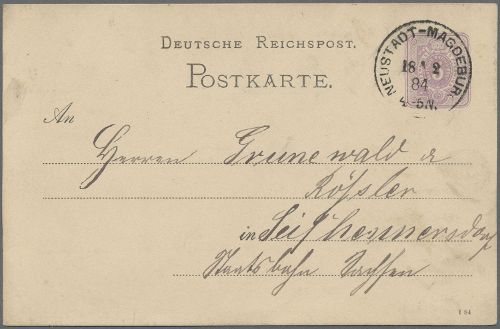 DEUTSCHE REICHSPOST.
POSTKARTE.
NEUSTADT-MAGDEBURG
18 12
84
4-5N.
An
Herren Grunewald &
Rößler
in Seifhennersdorf
Staatsbahn Sachsen
1 84